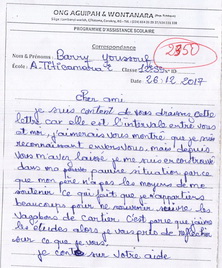 ONG AGUIPAH & WONTANARA
PROGRAMME D'ASSISTANCE SCOLAIRE
Correspondance
2350
Nom & Prénoms : Barry Youssouf
Ecole : A.Tita Camara 2 Classe
Date : 26.12.2017
Cher ami
je suis content de vous dressez cette
lettre car elle est l'intervale entre vous
et moi, j'aimerais vous montré que je suis
reconnaissant envers vous, mais depuis
vous m'avez laissé je me suis en controuvé
dans ma pauvre situation parce
que mon père n'a pas les moyens de me
soutenir. Ce qui fait que je
beaucoups pour ne les
vagabons de cartier. C'est parce que j'aime
les études alors je vous prie de réflechir
sur ce que je vous
je conte sur votre aide